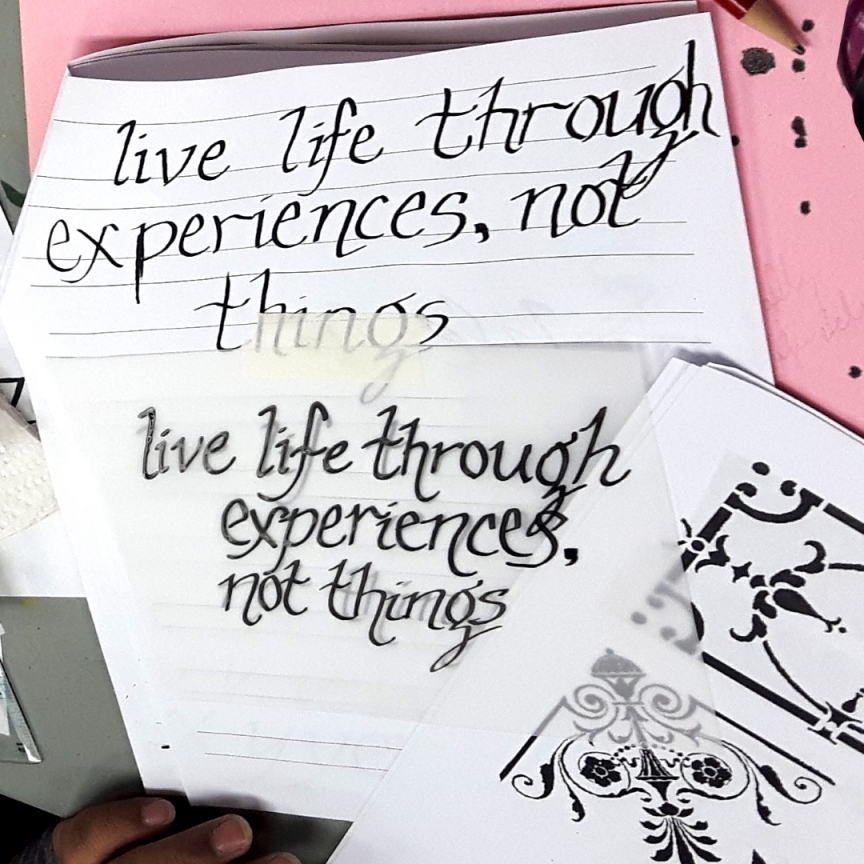 live life through
experiences, not
things
live life through
experiences,
not things